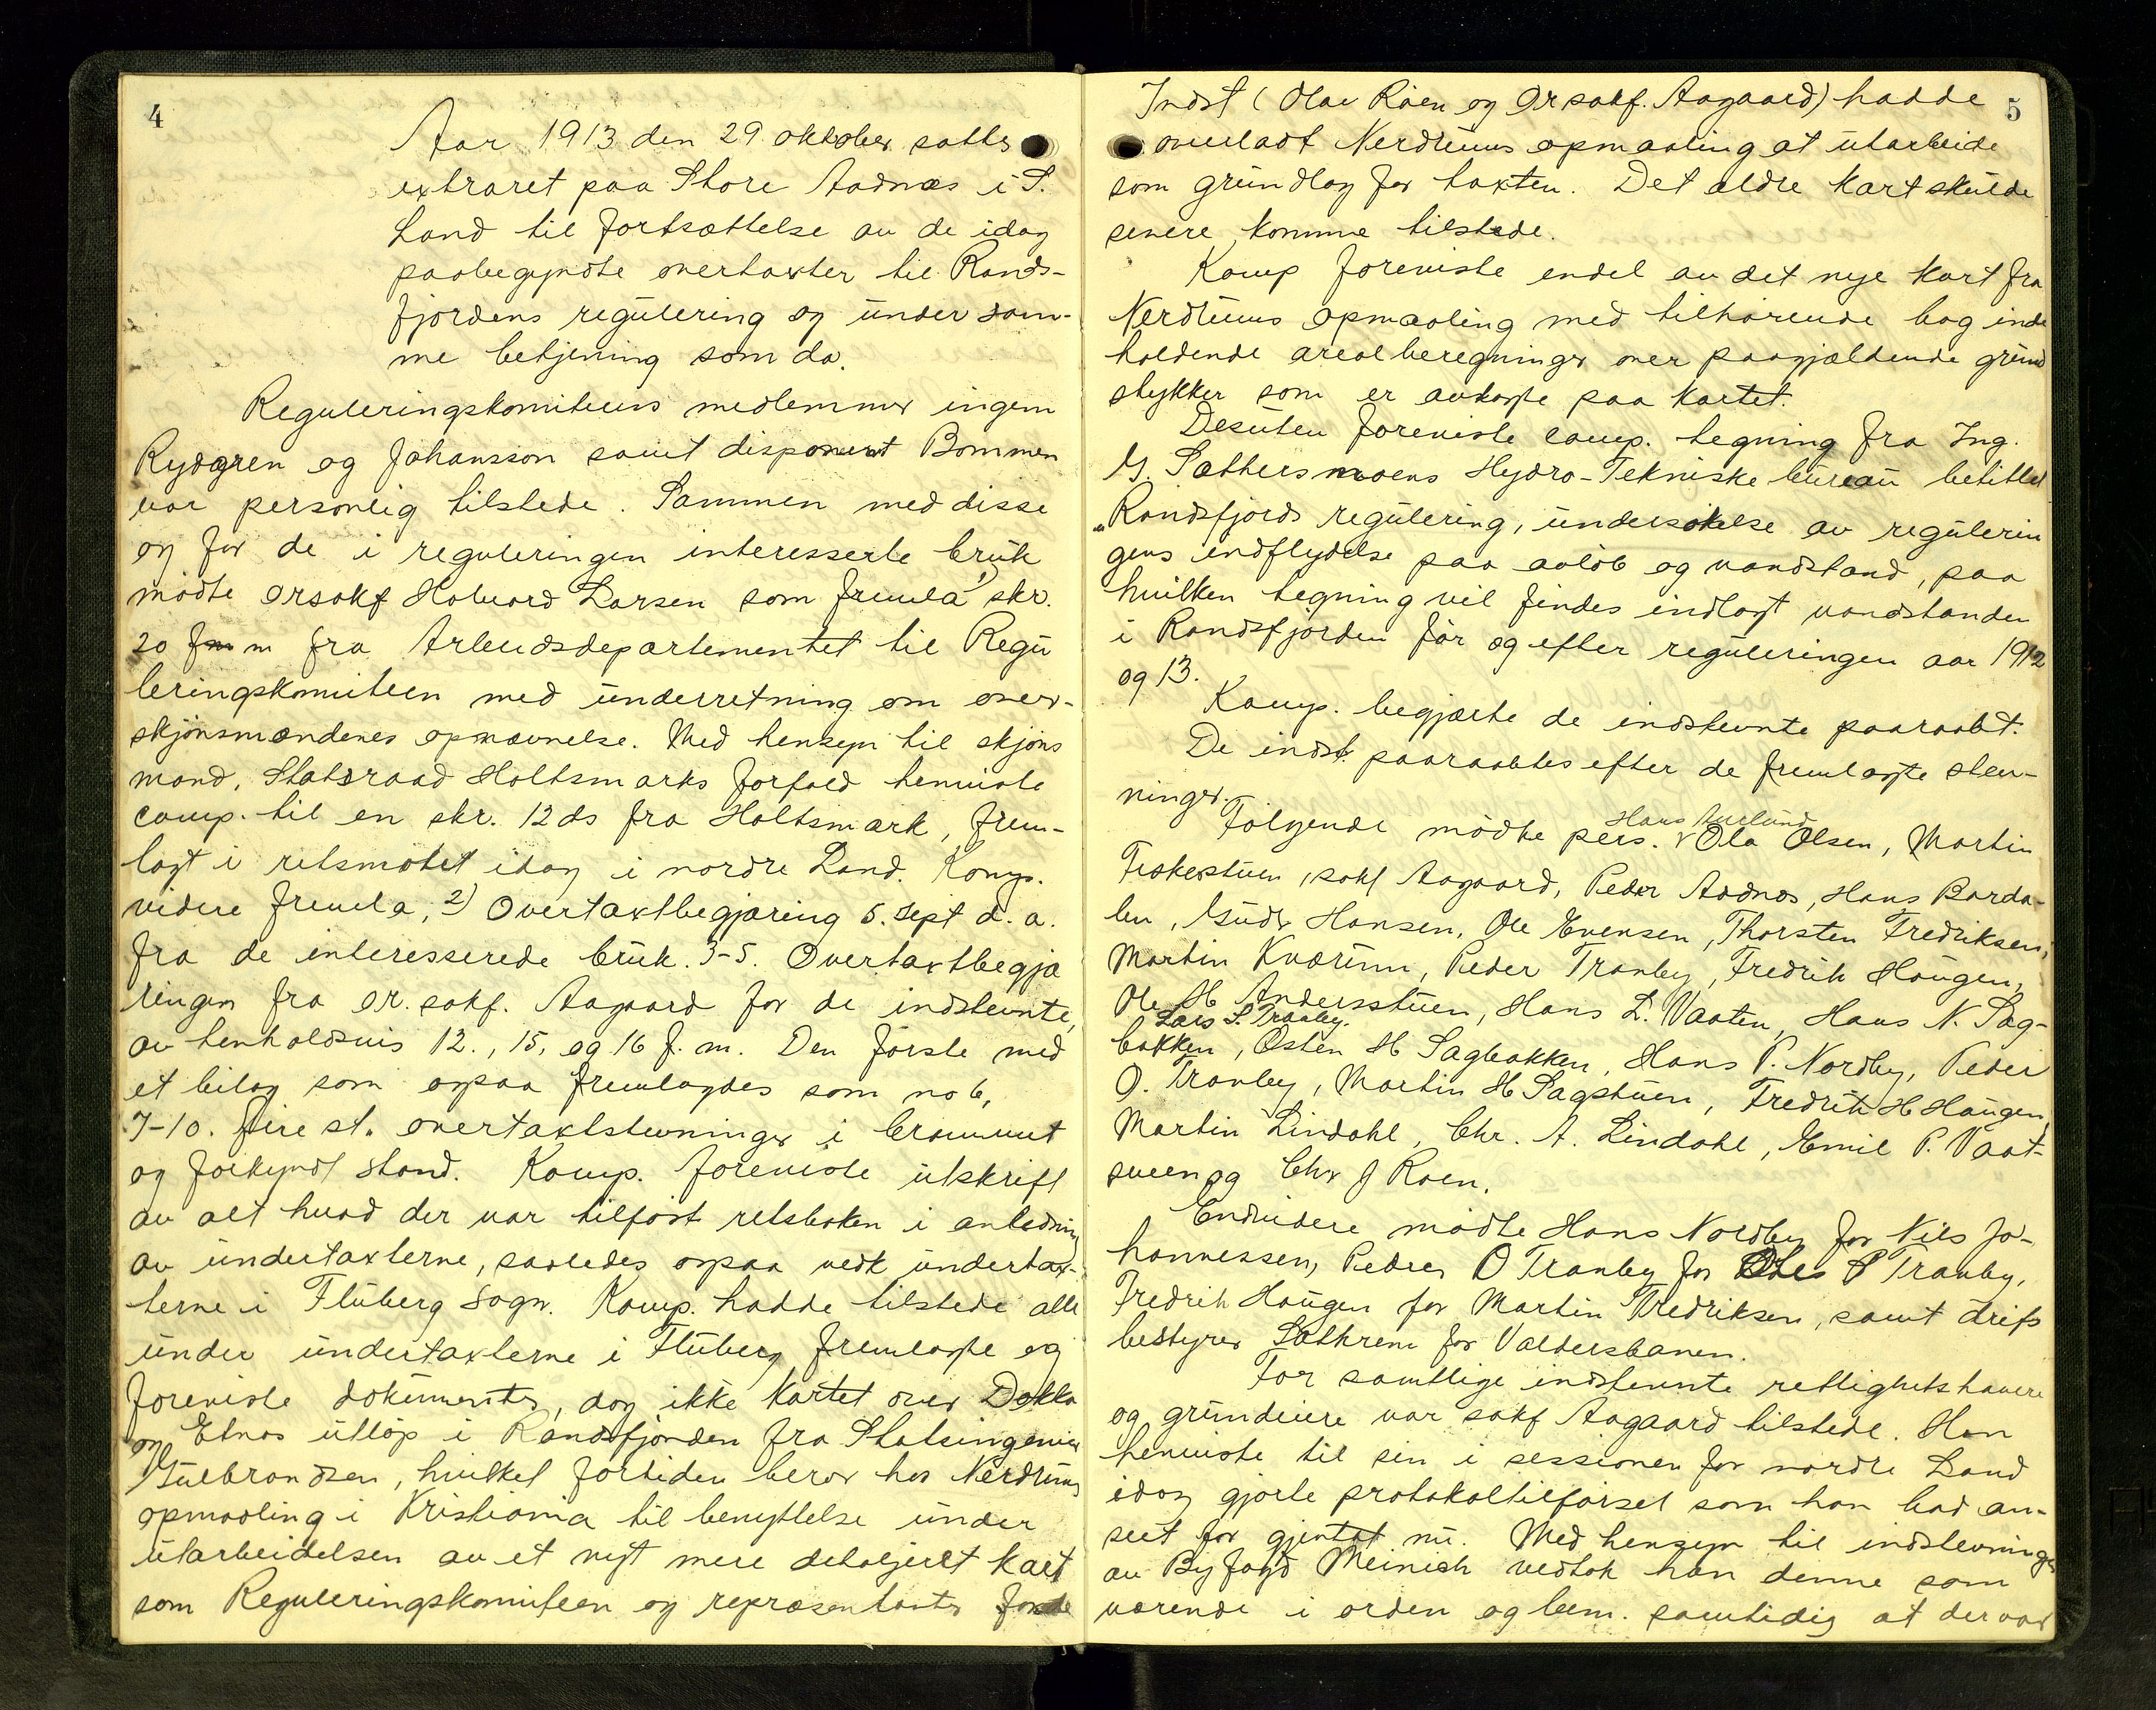 4
Aar 1913 den 29 oktober sattes
extraret paa Store Aadnæs i S.
Land til fortsættelse av de idag
paabegyndte overtaxter til Rands-
fjordens regulering og under sam-
me betjening som da.
Reguleringskomiteens medlemmer ingeni
Rydgren og Johansson samt disponent Bommen
var personlig tilstede. Sammen med disse
og for de i reguleringen interesserte bruk
mødte Orsakf Halvord Larsen som fremla 1) skr.
20 fm m fra Arbeidsdepartementet til Regu
leringskomiteen med underretning om over-
skjønsmændenes opnævnelse. Med hensyn til skjøns
mand, Statsraad Holtsmarks forfald henviste
comp. til en skr. 12 ds fra Holtsmark, frem-
lagt i retsmøtet idag i nordre Land. Komp.
videre fremla, 2) Overtaxtbegjæring 5. sept d. a.
fra de interesserede bruk. 3-5. Overtaxtbegjæ
ringen fra or. sakf. Aagaard for de indstevnte,
av henholdsvis 12., 15, og 16 f. m. Den første med
et bilag som ogsaa fremlagdes som no 6,
7-10. Fire st. overtaxtstevninger i berammet
og forkyndt stand. Komp. foreviste utskrift
av alt hvad der var tilført retsboken i anledning
av undertaxterne, saaledes ogsaa vedk undertax-
terne i Fluberg Sogn. Komp. hadde tilstede alle
under undertaxterne i Fluberg fremlagte og
foreviste dokumenter, dog ikke kartet over Dokka
og Etnas utløp i Randsfjorden fra Statsingeniør
Gulbrandsen, hvilket fortiden beror hos Nerdrums
opmaaling i Kristiania til benyttelse under
utarbeidelsen av et nyt mere detaljert kart
som Reguleringskomiteen og repræsentanter for de
5
Indst (Olav Røen og Orsakf. Aagaard) hadde
overladt Nerdrums opmaaling at utarbeide
som grundlag for taxten. Det ældre kart skulde
senere komme tilstede.
Komp foreviste endel av det nye kart fra
Nerdrums opmaaling med tilhørende bog inde
holdende arealberegninger over paagjældende grund
stykker som er avlagte paa kartet.
Desuten foreviste comp. tegning fra Ing.
G. Sæthersmoens Hydro-Tekniske bureau betitlet
"Randsfjords regulering, undersøkelse av regulerin
gens indflydelse paa avløb og vandstand, paa
hvilken tegning vil findes indlagt vandstanden
i Randsfjorden før og efter reguleringen aar 1912
og 13.
Komp. begjærte de indstevnte paaraabt.
De indst. paaraabtes efter de fremlagte stev-
ninger.
Hans Aurlund
Følgende mødte pers. v Ola Olsen, Martin
Fiskestuen, sakf Aagaard, Peder Aadnæs, Hans Barda-
len, Gudr Hansen, Ole Evensen, Thorsten Fredriksen,
Martin Kværum, Peder Tranby, Fredrik Haugen,
Ole H Andersstuen, Hans L. Vaaten, Hans N. Sag-
Lars S. Tranby.
bakken, Østen H Sagbakken, Hans P. Nordby, Peder
O. Tranby, Martin H Sagstuen, Fredrik H Haugen
Martin Lindahl, Chr. A. Lindahl, Emil P. Vaat-
sveen og Chr J Roen.
Endvidere mødte Hans Nordby for Nils Jo-
hannessen, Peder O Tranby for Ole P Tranby,
Fredrik Haugen for Martin Fredriksen, samt drifs
bestyrer Løthren for Valdersbanen.
For samtlige indstevnte rettighetshavere
og grundeiere var sakf Aagaard tilstede. Han
henviste til sin i sessionen for nordre Land
idag gjorte protokoltilførsel som han bad an-
seet for gjentat nu. Med hensyn til indstevningen
av Byfogd Meinich vedtok han denne som
værende i orden og bem. samtidig at der var